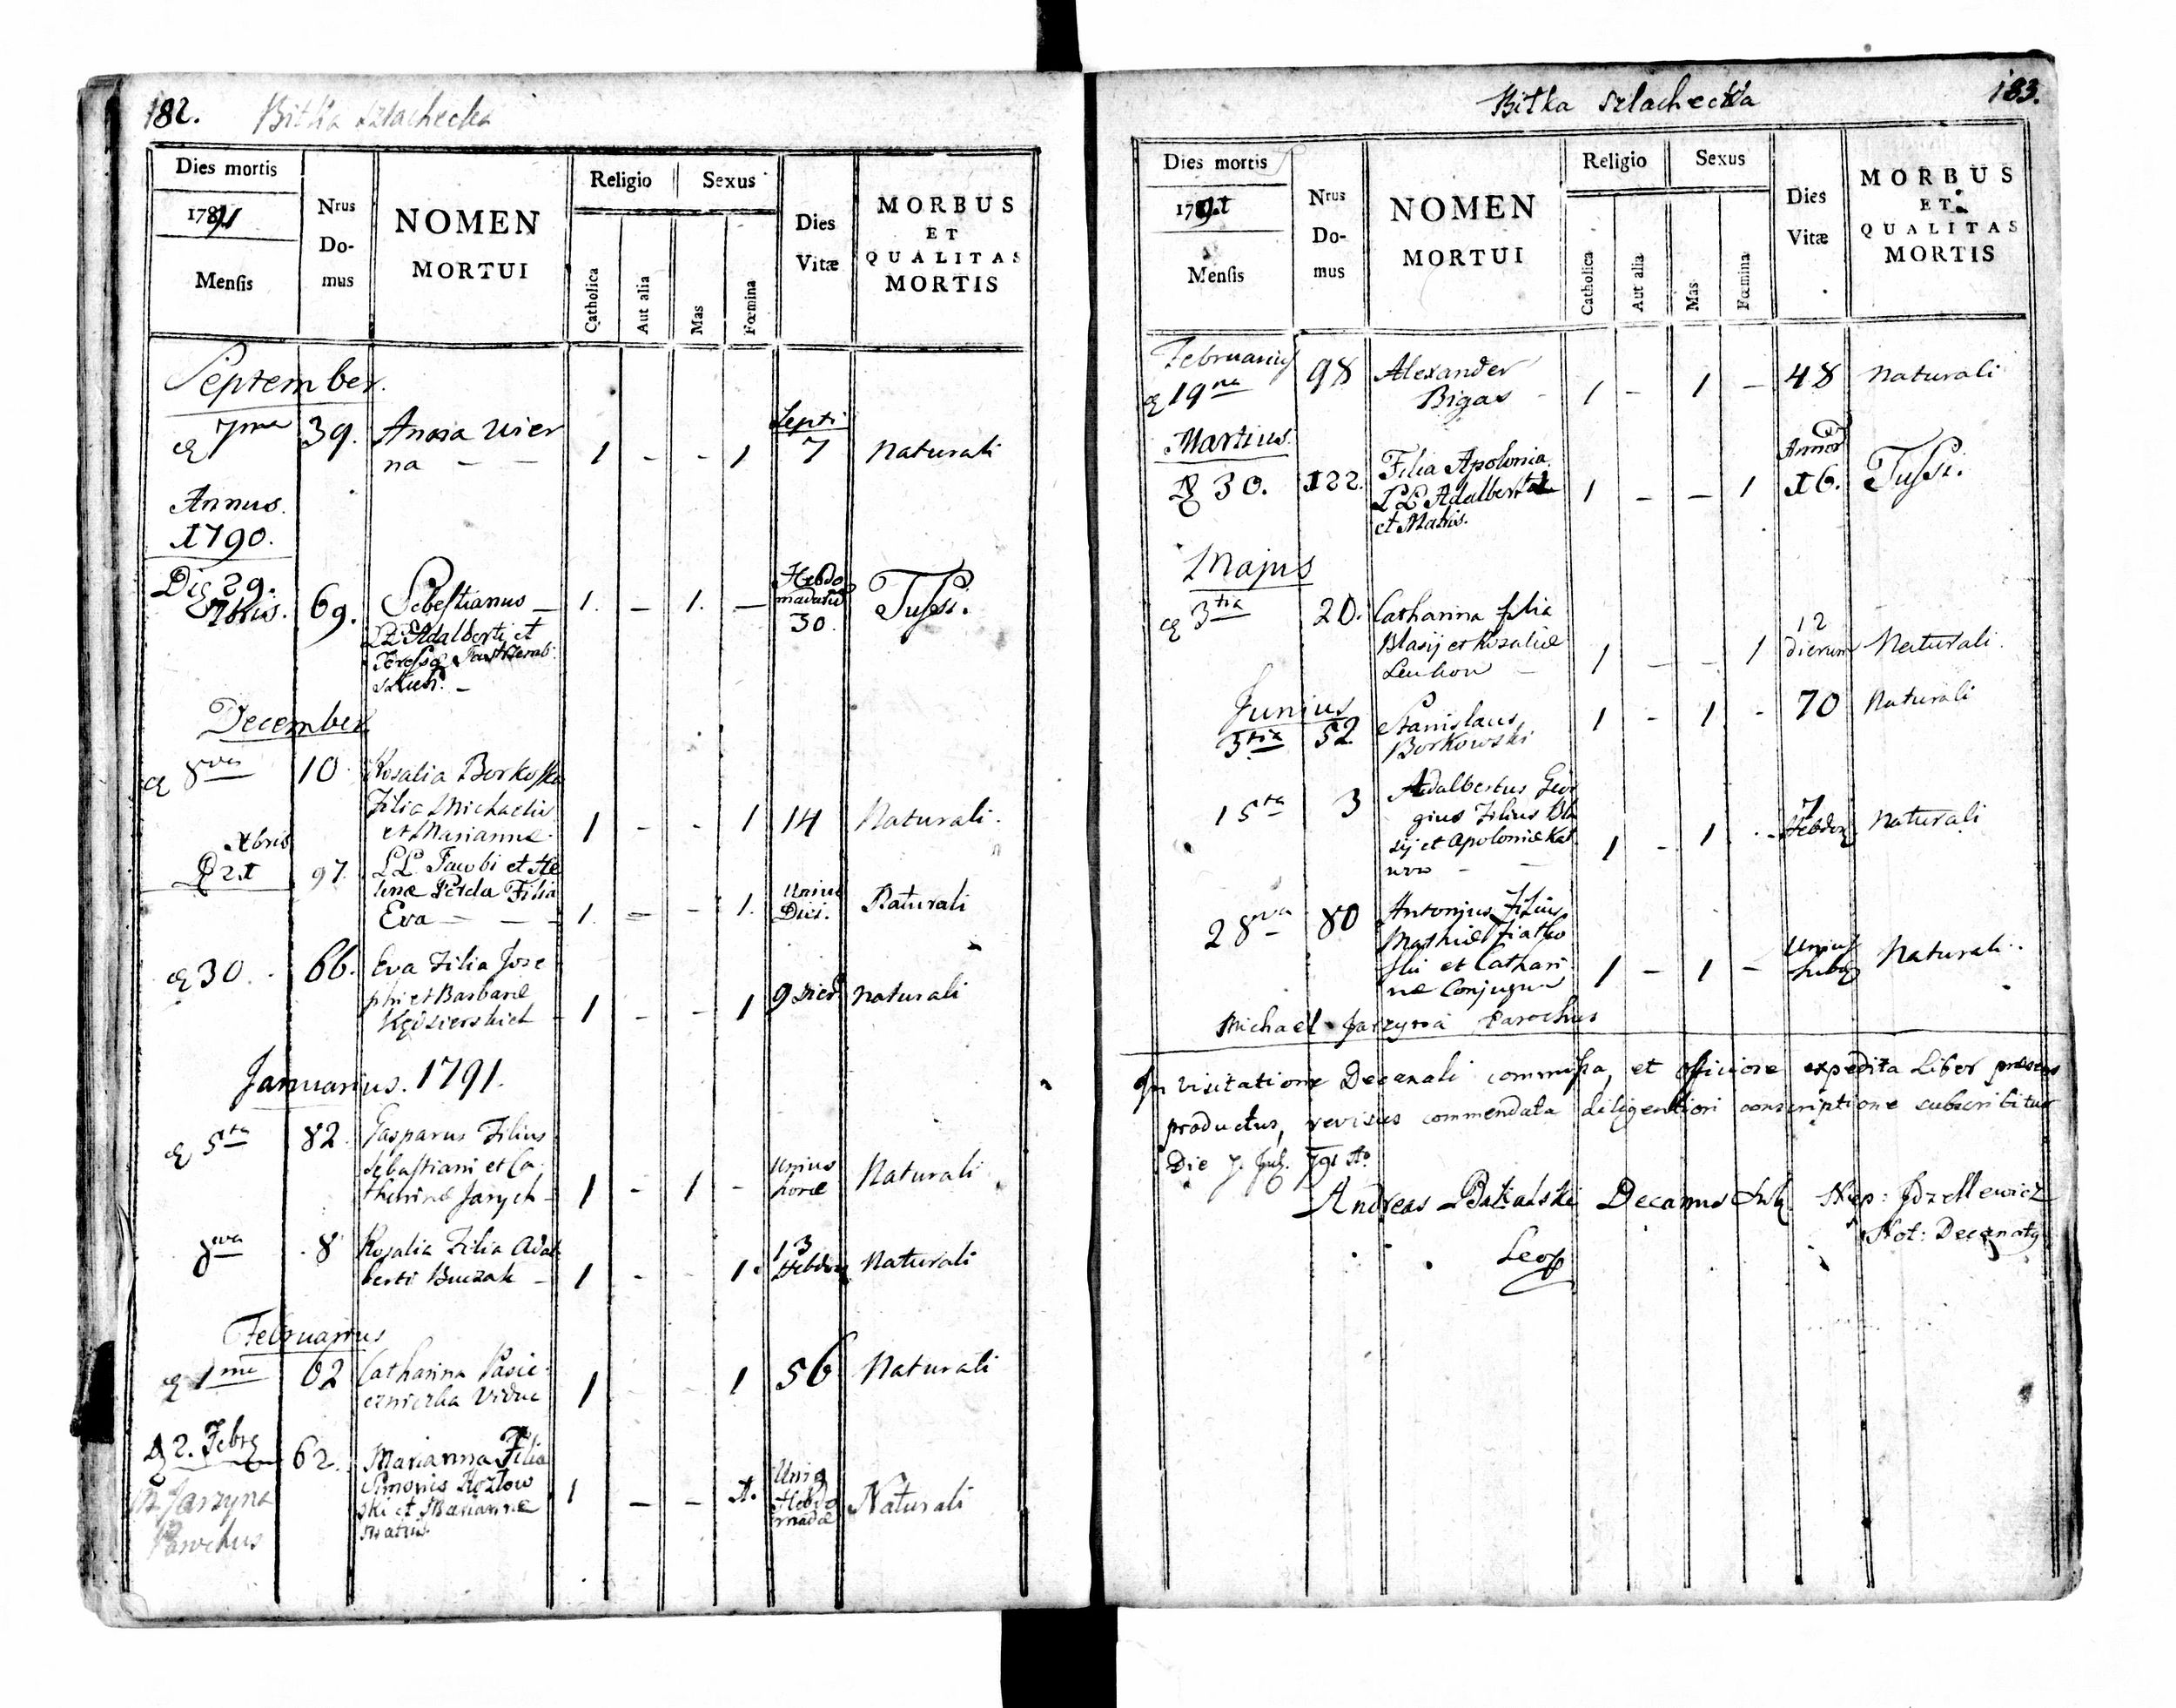 182. Bitka szlachecka
Dies mortis
1791
Mensis
Nrus Do- mus
NOMEN
MORTUI
Religio
Catholica
Aut alia
Sexus
Mas
Fœmina
Dies
Vitæ
MORBUS
ET
QUALITAS
MORTIS
September.
7ma 39. Anna Wier
na — — 1 - - 1 Septi 7 Naturali
Annus.
1790.
Die 29.
9bris. 69. Sebestianus — 1. — 1. — Hebdo
madarū
30. Tussi.
LL Adalberti et
Teressæ
December
8va 10. Rosalia Borkoska
Filia Michaelis
et Marianne 1 - - 1 14 Naturali.
Xbris
21 97. LL Jacobi et He
lenæ Perda Filia
Eva — — 1. = - 1. Unius
Diei. Naturali
30. 66. Eva Filia Jose
phi et Barbaræ
Kędzierskich 1 - - 1 9 Dierū Naturali
Januarius. 1791.
5ta 82. Gasparus Filius
Sebastiani et Ca
therinæ Jarych - 1 - 1 - Unius
horæ Naturali
8va 8 Rosalia Filia Adal
berti Buczak - 1 - - 1. 13
Hebdom Naturali
Februarius
1ma 62 Catharina Pasie
czniczka Vidua 1 - - 1 56 Naturali
2. Febr 62. Marianna Filia
Simonis Kozłow
ski et Mariannæ 1 - - 1. Uniq
Hebdo
madæ Naturali
M Jarzyna
Parochus
Bitka szlachecka 183.
Dies mortis
1791
Mensis
Nrus Do- mus
NOMEN
MORTUI
Religio
Catholica
Aut alia
Sexus
Mas
Fœmina
Dies
Vitæ
MORBUS
ET
QUALITAS
MORTIS
Februarius
19na 98 Alexander
Bigas - 1 - 1 - 48 Naturali
Martius.
30. 122. Filia Apolonia
LL Adalberti
et Mathis. 1 - - 1 Annor
16. Tussi.
Majus
3tia 20. Catharina filia
Blasij et Rosaliæ
Leukow - 1 - - 1 12
dierum Naturali.
Junius
3tia 52 Stanislaus
Borkowski 1 - 1 - 70 Naturali
15ta 3 Adalbertus Geor
gius Filius Bla
sij et Apoloniæ Kat
1 - 1 - 7
Hebdom Naturali
28va 80 Antonjus Filius
Mathiæ Fiatko
ski et Cathari
næ Conjugum 1 - 1 - Unius
Naturali.
Michael Jarzyna Parochus
In visitatione Decanali commissa, et officiose expedita Liber præsens
productus, revisus commendata diligentiori conscriptione subscribitur
Die 7. Jul. 791 Ao
Andreas Decanus
Leop
Not: Decanatq